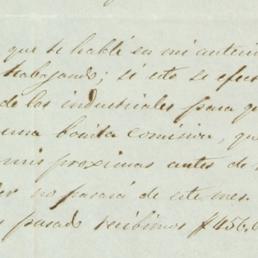 que te hablé en mi anterior
trabajando; si esto se efect
de los industriales para q
una bonita comision, qu
mis proximas antes de
no pasará de este mes.
pasado recibimos #456,